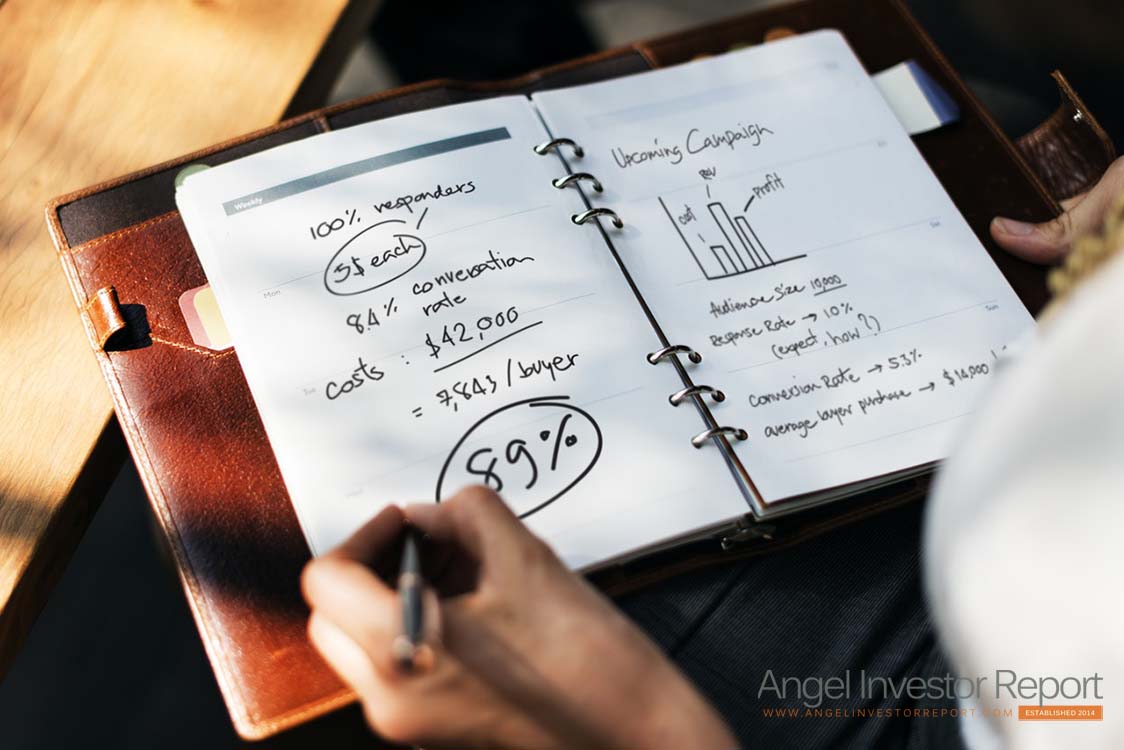 Weekly
100% responders
5$ each
84% conversation
rate
costs : $42,000
= 7,843 / buyer
89%
Mon
Upcoming Campaign
cost
rev
profit
Audience Size 10,000
Response Rate → 10%
(expect, how?)
Conversion Rate → 5.3%
average buyer purchase → $14,000
Angel Investor Report
WWW.ANGELINVESTORREPORT.COM ESTABLISHED 2014